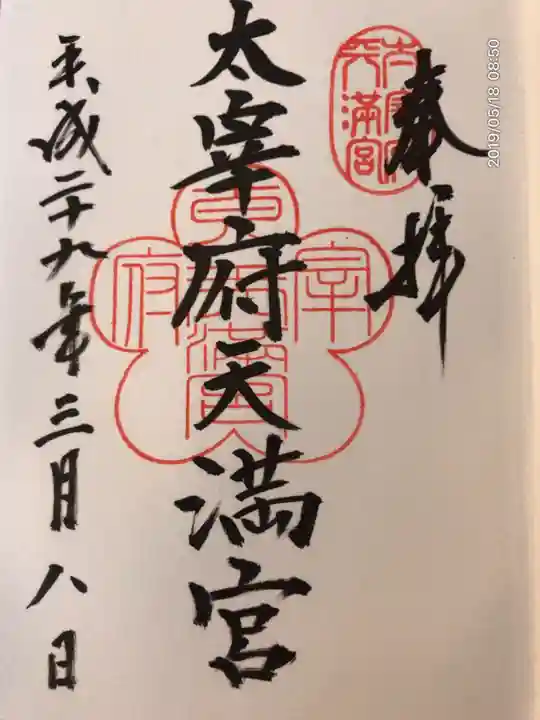 奉拝
太宰府天満宮
平成二十九年三月八日
2019/05/18 08:50